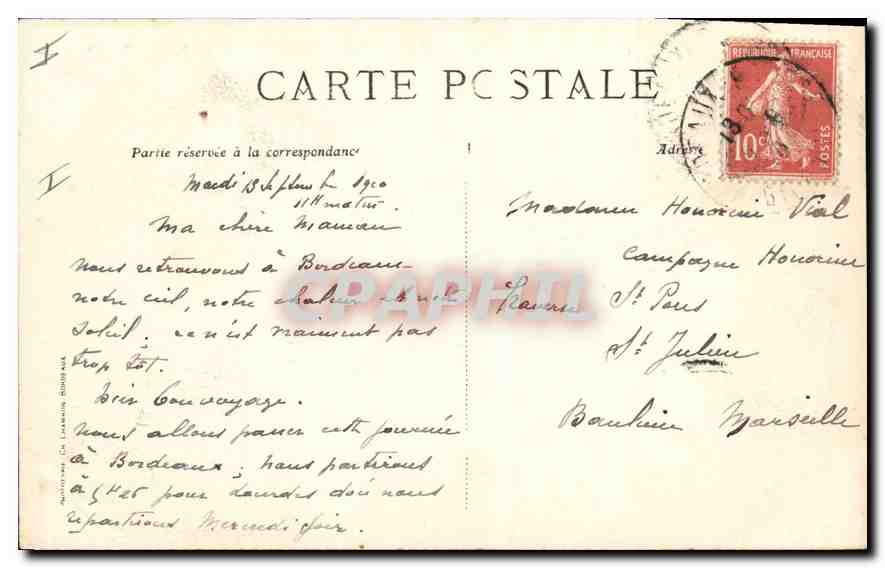 CARTE POSTALE
Partie réservée à la correspondance
Adresse
REPUBLIQUE FRANÇAISE
10c
POSTES
Mardi 13 Septembre 1910
11H matin.
Ma chère Maman
nous retrouvons à Bordeaux
notre ciel, notre chaleur et notre
soleil. ce n'est vraiment pas
trop tôt.
bien bon voyage.
nous allons passer cette journée
à Bordeaux; nous partirons
à 5H26 pour Lourdes d'où nous
repartirons Mercredi soir.
Madame Honorine Vial
Campagne Honorine
Traverse St Pons
St Julien
Banlieue Marseille
PHOTOTYPIE CH. CHAMBON, BORDEAUX
CPAPHIL